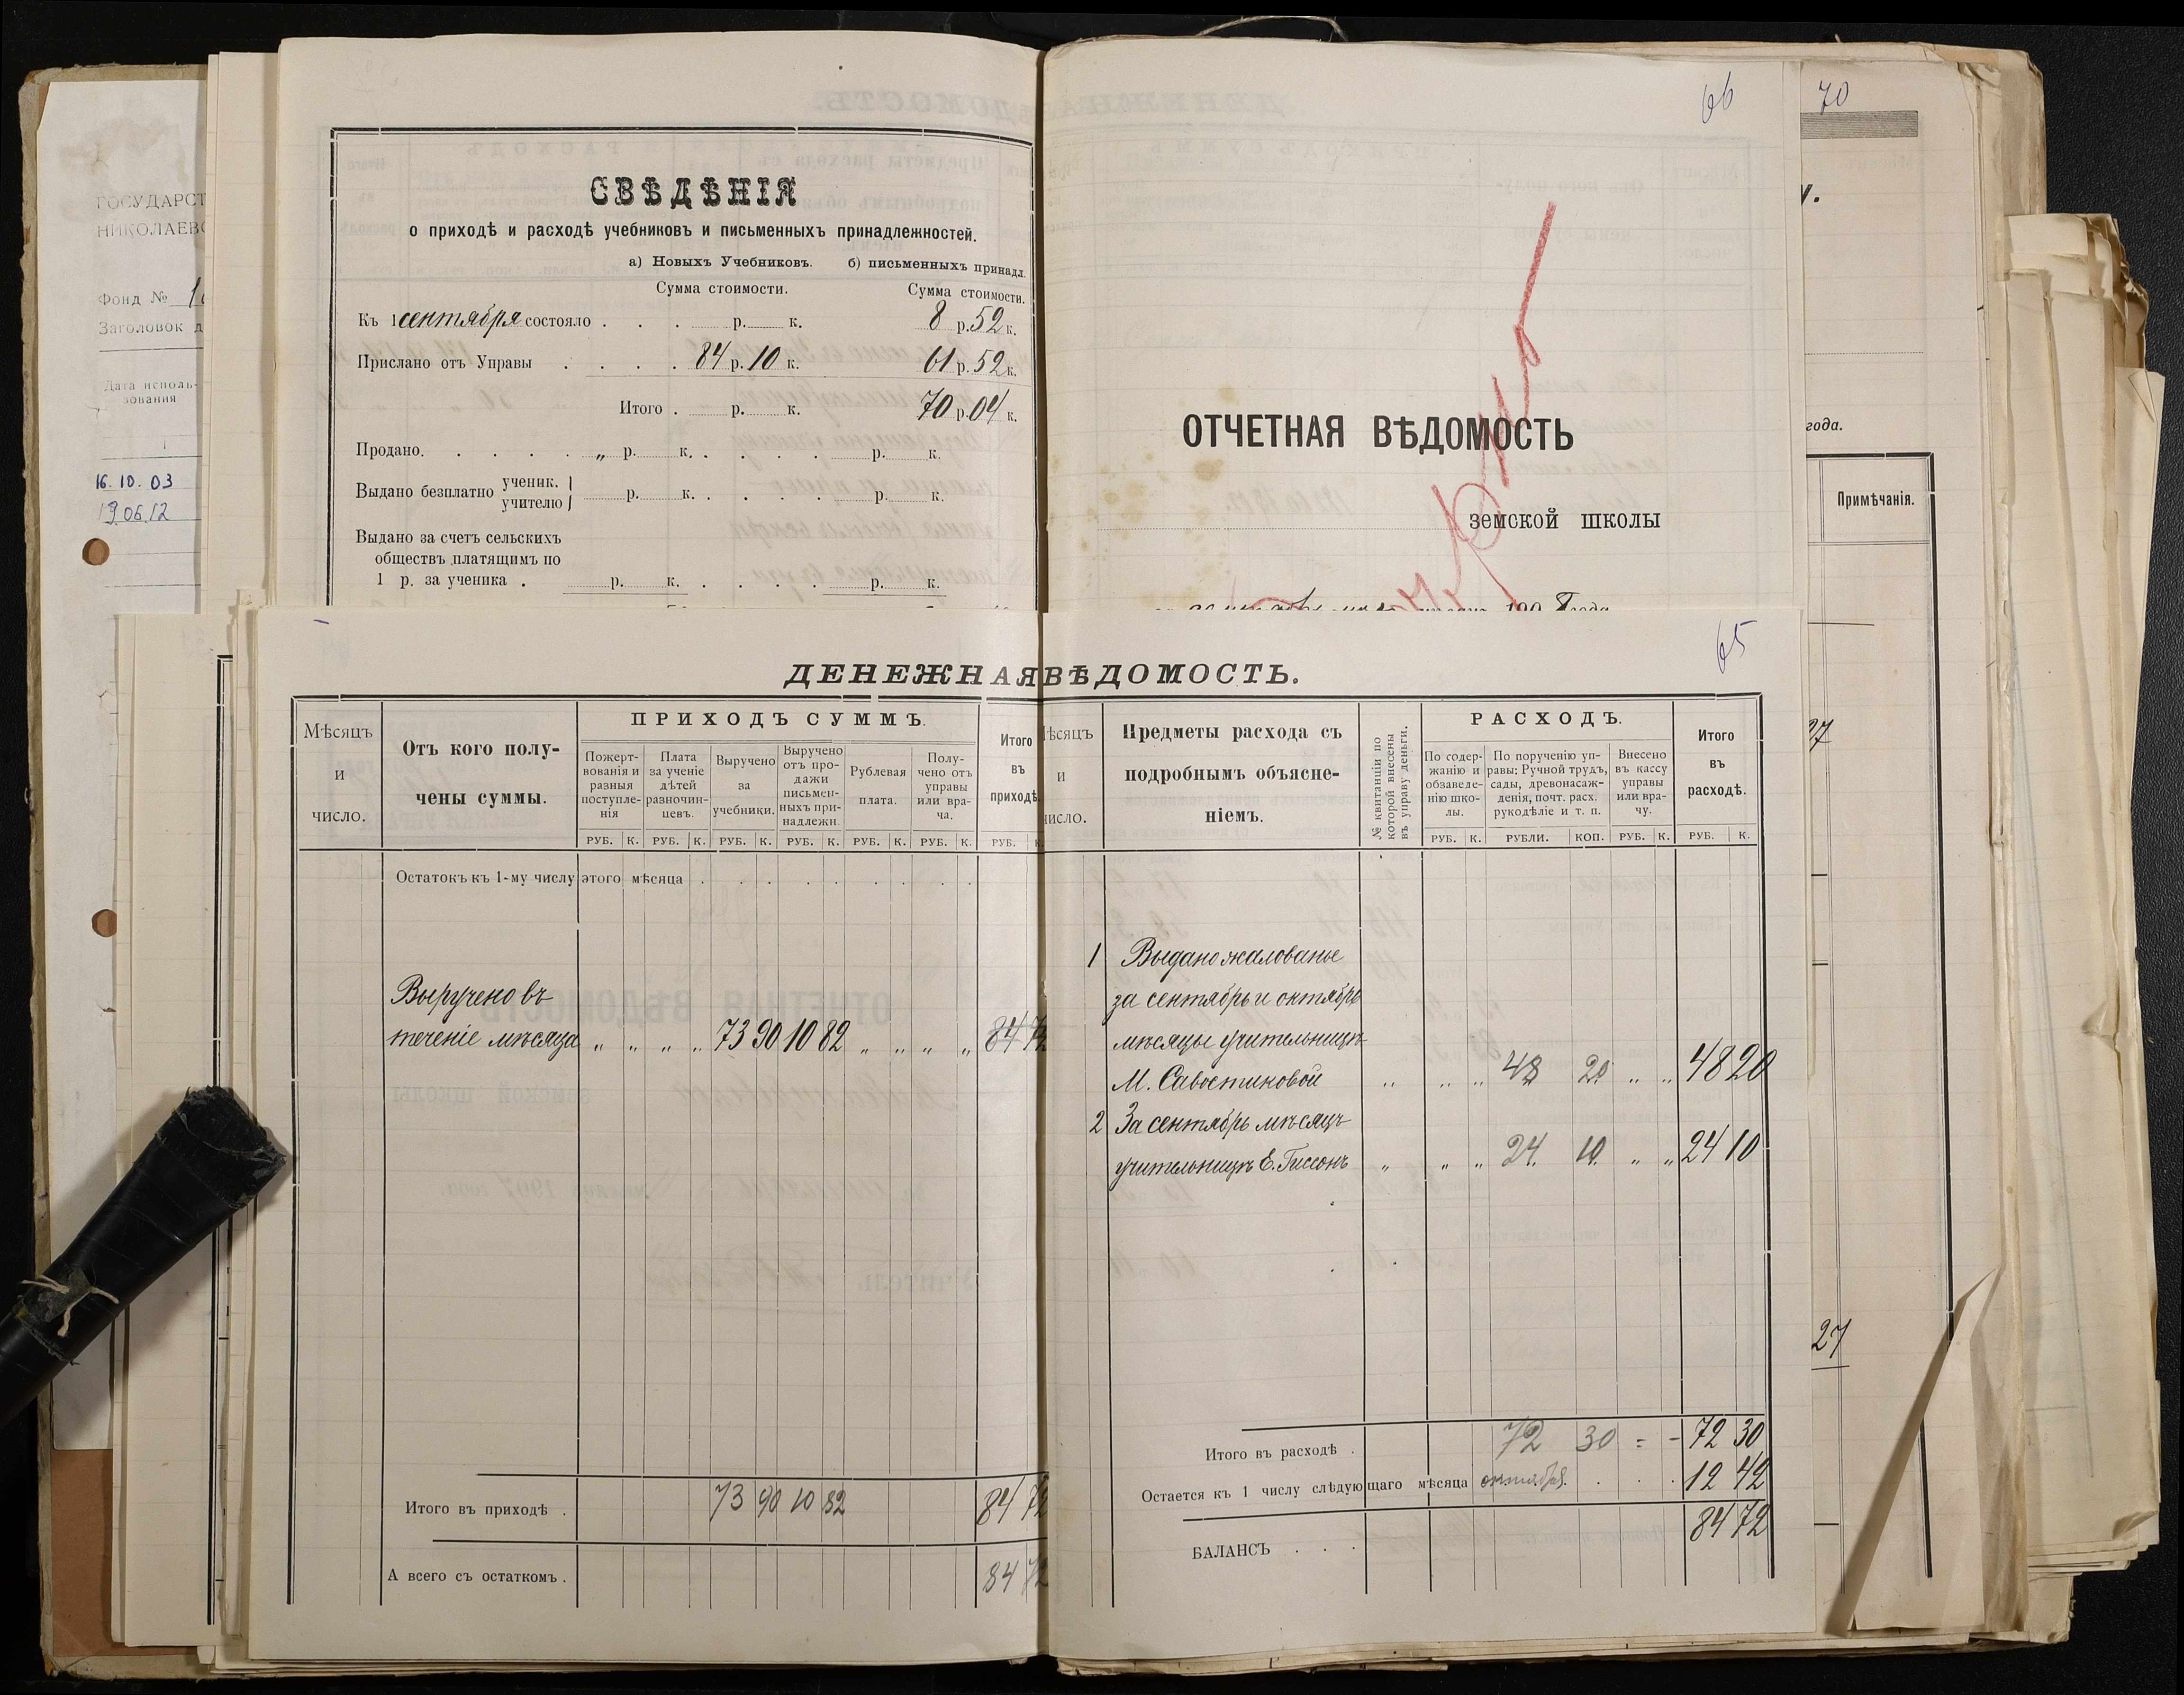 ГОСУДАРСТ
НИКОЛАЕВС
Фонд №
Заголовок д
Дата исполь-
зования
1
16.10.03
19.06.12
СВѢДѢНІЯ
о приходѣ и расходѣ учебниковъ и письменныхъ принадлежностей.
а) Новыхъ Учебниковъ. б) письменныхъ принадл.
Сумма стоимости. Сумма стоимости.
Къ 1 сентября состояло . . . р. к. 8 р. 52 к.
Прислано отъ Управы . . . . 84 р. 10 к. 61 р. 52 к.
Итого . р. к. 70 р. 04 к.
Продано. . . . . „ р. к. . . . . р. к.
Выдано безплатно ученик. учителю р. к. . . . . р. к.
Выдано за счетъ сельскихъ
обществъ платящимъ по
1 р. за ученика . р. к. . . . . р. к.
66
ОТЧЕТНАЯ ВѢДОМОСТЬ
земской школы
70
года.
Примѣчанія.
27
27
65
ДЕНЕЖНАЯ ВѢДОМОСТЬ.
Мѣсяцъ и число.
Отъ кого полу-
чены суммы.
ПРИХОДЪ СУММЪ.
Пожерт-
вованія и
разныя
поступле-
нія
Плата
за ученіе
дѣтей
разночин-
цевъ.
Выручено
за
учебники.
Выручено
отъ про-
дажи
письмен-
ныхъ при-
надлежн.
Рублевая
плата.
Полу-
чено отъ
управы
или вра-
ча.
Итого
въ
приходѣ.
РУБ. К. РУБ. К. РУБ. К. РУБ. К. РУБ. К. РУБ. К. РУБ. К.
Остатокъ къ 1-му числу этого мѣсяца . . . . . . .
Выручено въ
теченіе мѣсяца „ „ „ „ 73 90 10 82 „ „ „ „ 84 72
Итого въ приходѣ . 73 90 10 82 84 72
А всего съ остаткомъ . 84 72
ѣсяцъ
и
число.
Предметы расхода съ
подробнымъ объясне-
ніемъ.
№ квитанціи по
которой внесены
въ управу деньги.
РАСХОДЪ.
По содер-
жанію и
обзаведе-
нію шко-
лы.
По порученію уп-
равы: Ручной трудъ,
сады, древонасаж-
денія, почт. расх.
рукодѣліе и т. п.
Внесено
въ кассу
управы
или вра-
чу.
Итого
въ
расходѣ.
РУБ. К. РУБЛИ. КОП. РУБ. К. РУБ. К.
1 Выдано жалованье
за сентябрь и октябрь
мѣсяцы учительницѣ
М. Савостиновой „ „ „ 48 20 „ „ 48 20
2 За сентябрь мѣсяцъ
учительницѣ Е. Гиссонъ „ „ „ 24 10 „ „ 24 10
Итого въ расходѣ . 72 30 = - 72 30
Остается къ 1 числу слѣдующаго мѣсяца октября. . . . 12 42
БАЛАНСЪ . . . 84 72